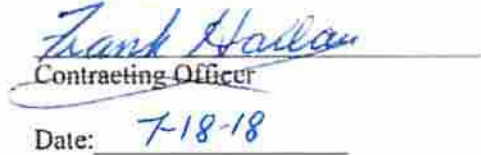 Frank
Contracting Officer
Date: 7-18-18